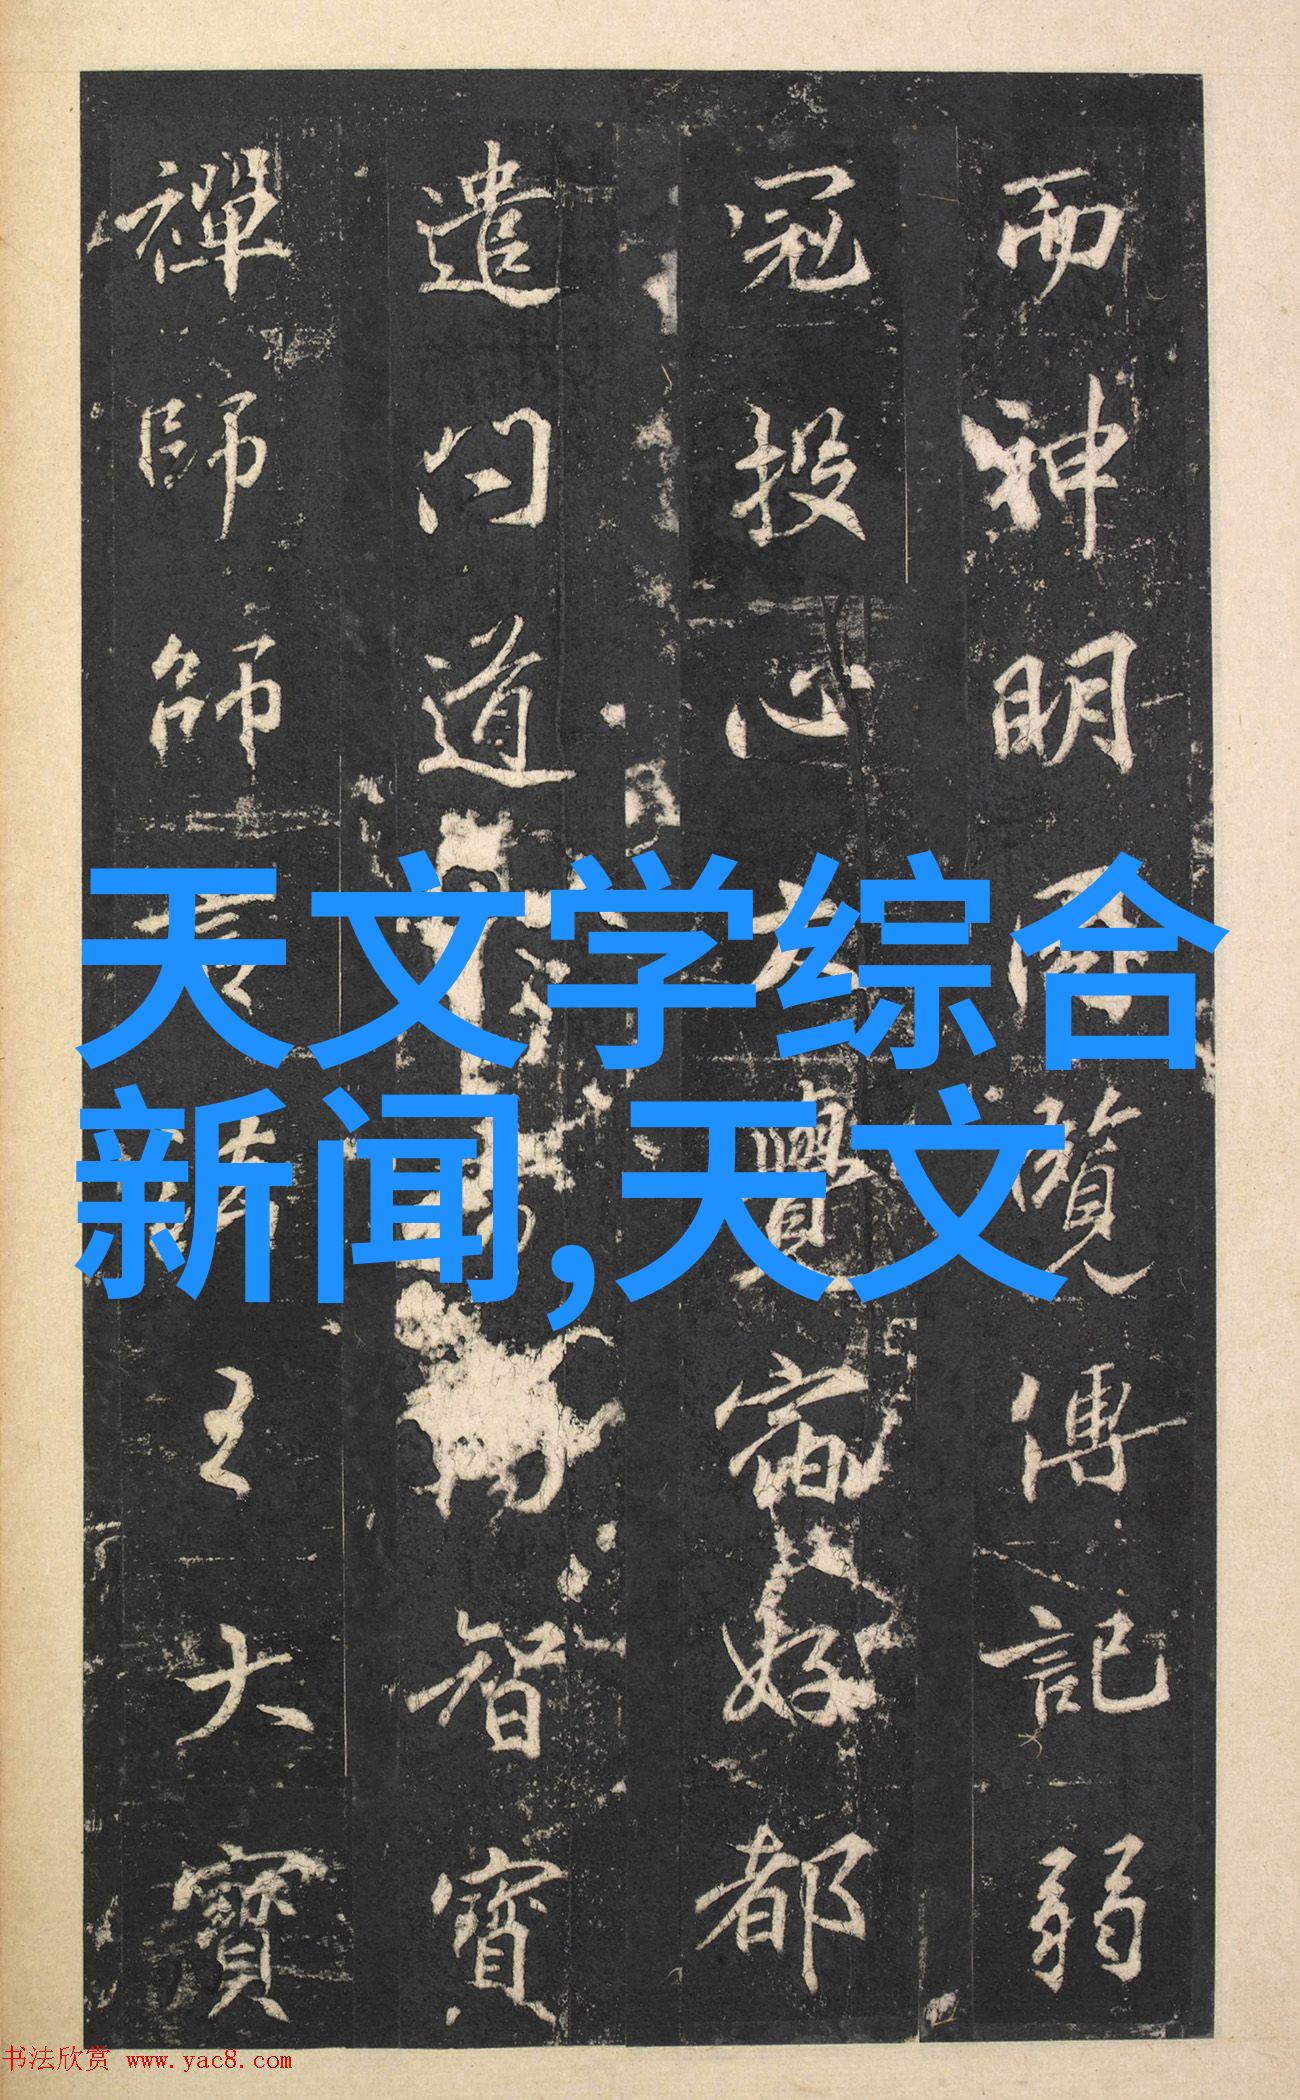 而神明覽傳記弱
冠投心大覺宿好都
遣問道場智寶
禪師師言大寶
天文学综合
新闻,天文
书法欣赏 www.yac8.com